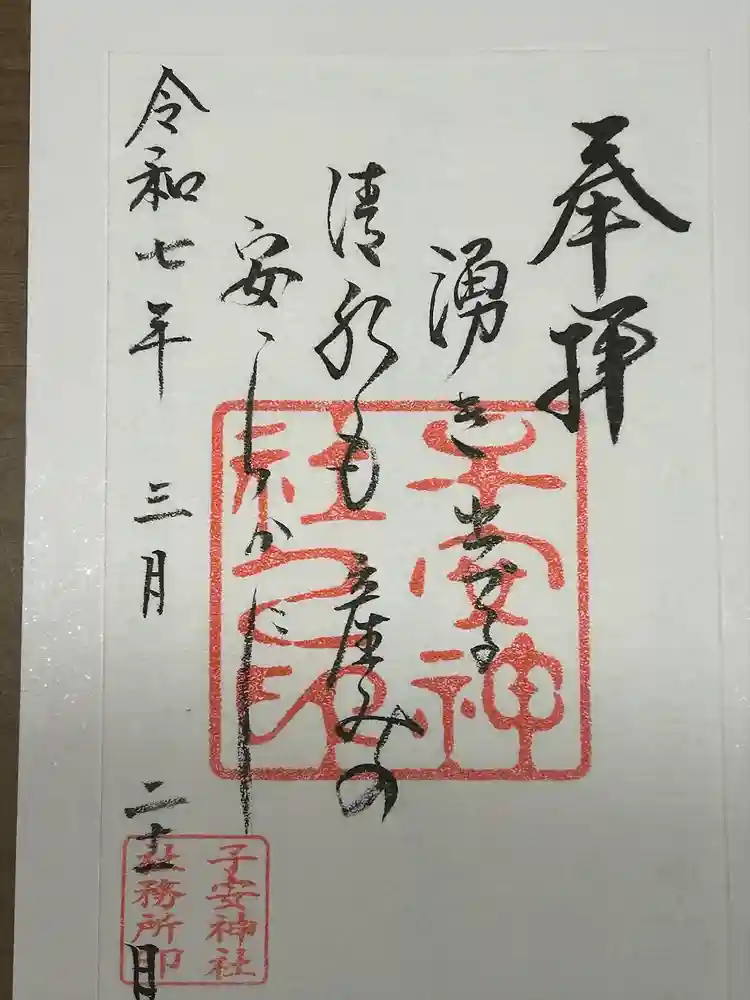 奉拝
湧き出づる
清水も産みの
安 かに
令和七年 三月 二十 日
子安神
社之印
子安神社
社務所印